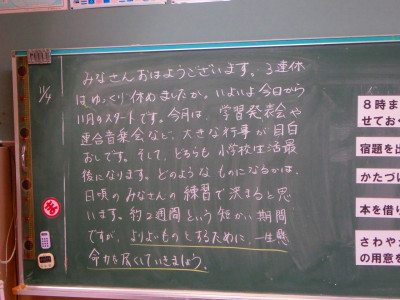 みなさんおはようございます。3連休
はゆっくり休めましたか。いよいよ今日から
11月のスタートです。今月は、学習発表会や
連合音楽会など、大きな行事が目白
おしです。そして、どちらも小学校生活最
後になります。どのようなものになるかは、
日頃のみなさんの練習で決まると思
います。約2週間という短かい期間
ですが、よりよいものとするために、一生懸
今から尽くしていきましょう。
11/4
8時ま
せておく
宿題を出
かたづけ
本を借り
さわやか
の用意を